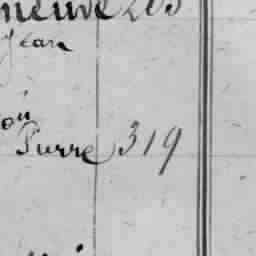 neuve 203
Jean
oui
Pierre 319